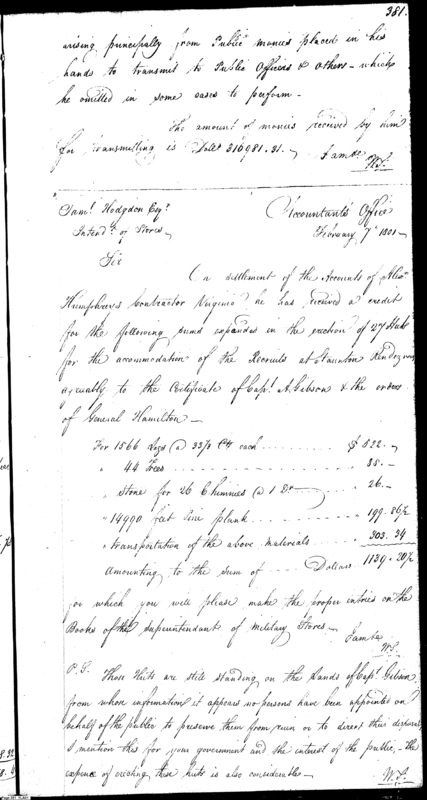 381.
arising principally from Public monies placed in his
hands to transmit to Public Officers & others - which
he omitted in some cases to perform -
The amount of monies received by him
for transmitting is Dolls 316981.31.
I am &c
W.S.
Saml. Hodgdon Esqr.
Accountants Office
Intendt. of Stores
February 7th 1801
Sir
On settlement of the Accounts of Alexr
Humphreys Contractor Virginia he has received a credit
for the following sums expended in the erection of 27 Huts
for the accommodation of the Recruits at Staunton Rendezvous
agreeably to the Certificate of Capt. A. Gibson & the orders
of General Hamilton -
For 1566 Logs @ 33⅓ Cts each $ 522.
" 44 Trees " 88.
" Stone for 26 Chimnies @ 1 Dr " 26.
" 14990 feet Pine plank " 199.86½
" transportation of the above materials 303.34
Amounting to the sum of Dollars 1139.20½
for which you will please make the proper entries on the
Books of the Superintendants of Military Stores -
I am &c
W.S.
P.S. These Huts are still standing on the Lands of Capt. Gibson
from whose information it appears no persons have been appointed on
behalf of the public to preserve them from ruin or to direct their disposal
I mention this for your government and the interest of the public - the
expence of erecting these huts is also considerable -
W.S.